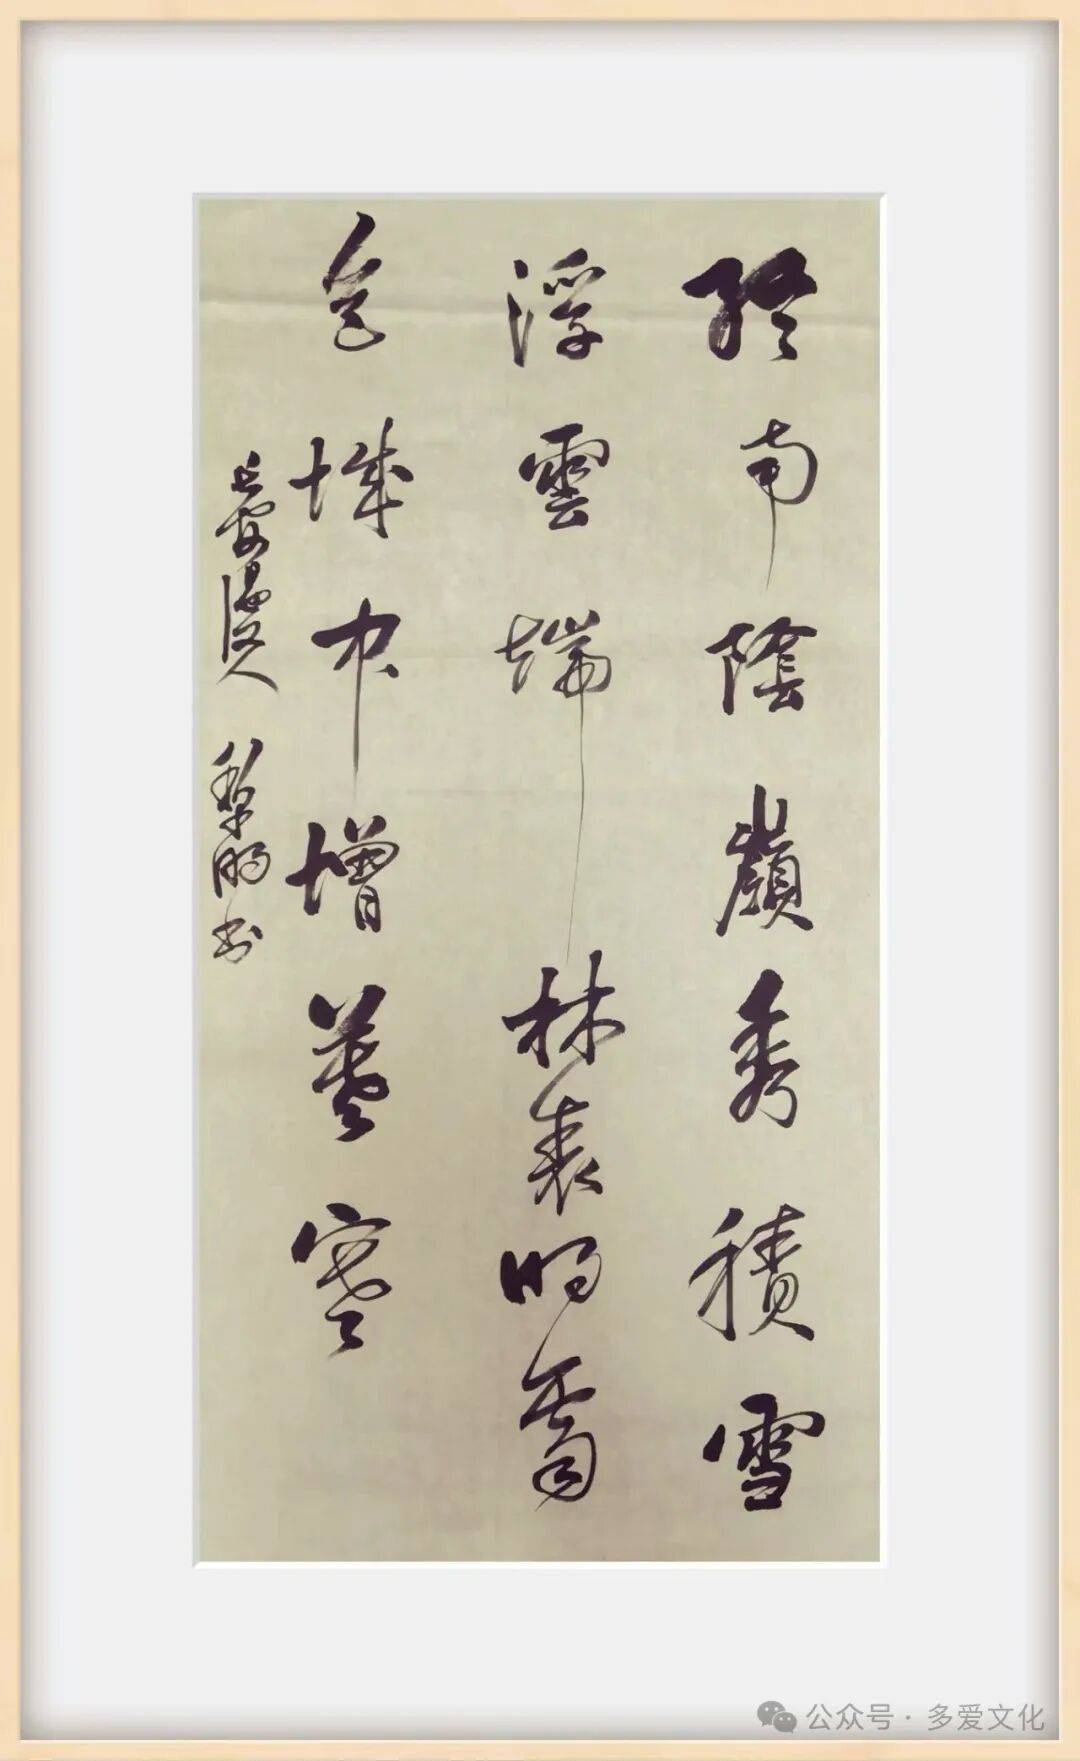 終南陰嶺秀積雪
浮雲端林表明霽
色城中增暮寒
長安漫人 黎明书
公众号 · 多爱文化